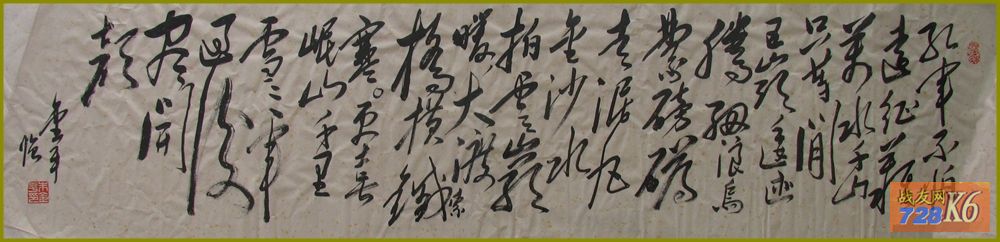 红军不怕
远征难
万水千山
只等闲
五岭逶迤
腾细浪乌
蒙磅礴
走泥丸
金沙水
拍云崖
暖大渡
桥横铁索
寒。更喜
岷山千里
雪三军
过后
尽开
颜
战友网
728K6